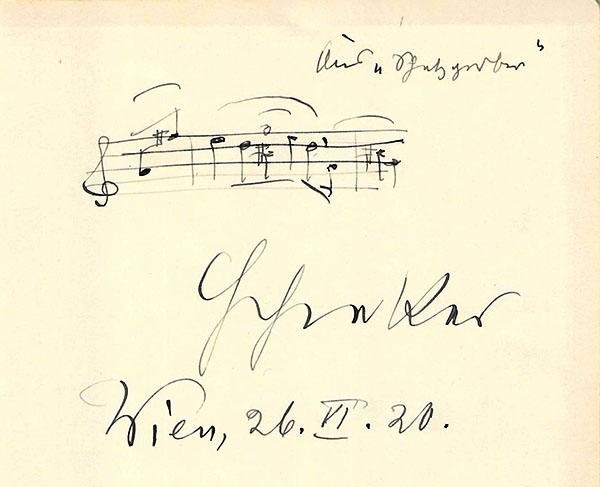 Aus „Schatzgräber“
Schreker
Wien, 26. VI. 20.